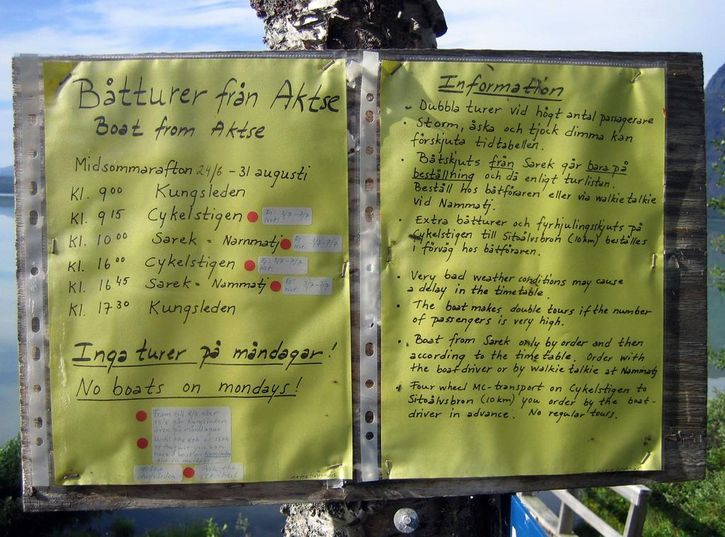 Båtturer från Aktse
Boat from Aktse
Midsommarafton 24/6 - 31 augusti
Kl. 9 00 Kungsleden
Kl. 9 15 Cykelstigen
Kl. 10 00 Sarek - Nammatj
Kl. 16 00 Cykelstigen
Kl. 16 45 Sarek - Nammatj
Kl. 17 30 Kungsleden
Inga turer på måndagar!
No boats on mondays!
Information
- Dubbla turer vid högt antal passagerare
- Storm, åska och tjock dimma kan
förskjuta tidtabellen.
- Båtskjuts från Sarek går bara på
beställning och då enligt turlistan.
Beställ hos båtföraren eller via walkie talkie
vid Nammatj.
- Extra båtturer och fyrhjulingsskjuts på
Cykelstigen till Sitoälvsbron (10km) beställes
i förväg hos båtföraren.
- Very bad weather conditions may cause
a delay in the timetable.
- The boat makes double tours if the number
of passengers is very high.
- Boat from Sarek only by order and then
according to the timetable. Order with
the boatdriver or by walkie talkie at Nammatj
- Four wheel MC-transport on Cykelstigen to
Sitoälvsbron (10km) you order by the boat-
driver in advance. No regular tours.